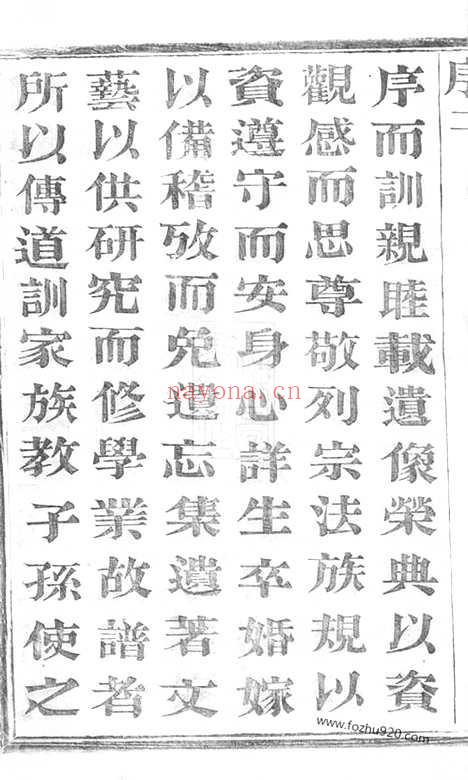 序二
序而訓親睦載遺像榮典以資
觀感而思尊敬列宗法族規以
資遵守而安身心詳生卒婚嫁
以備稽攷而免遺忘集遺著文
藝以供研究而修學業故譜者
所以傳道訓家族教子孫使之
nayona.cn
www.fozhu920.com